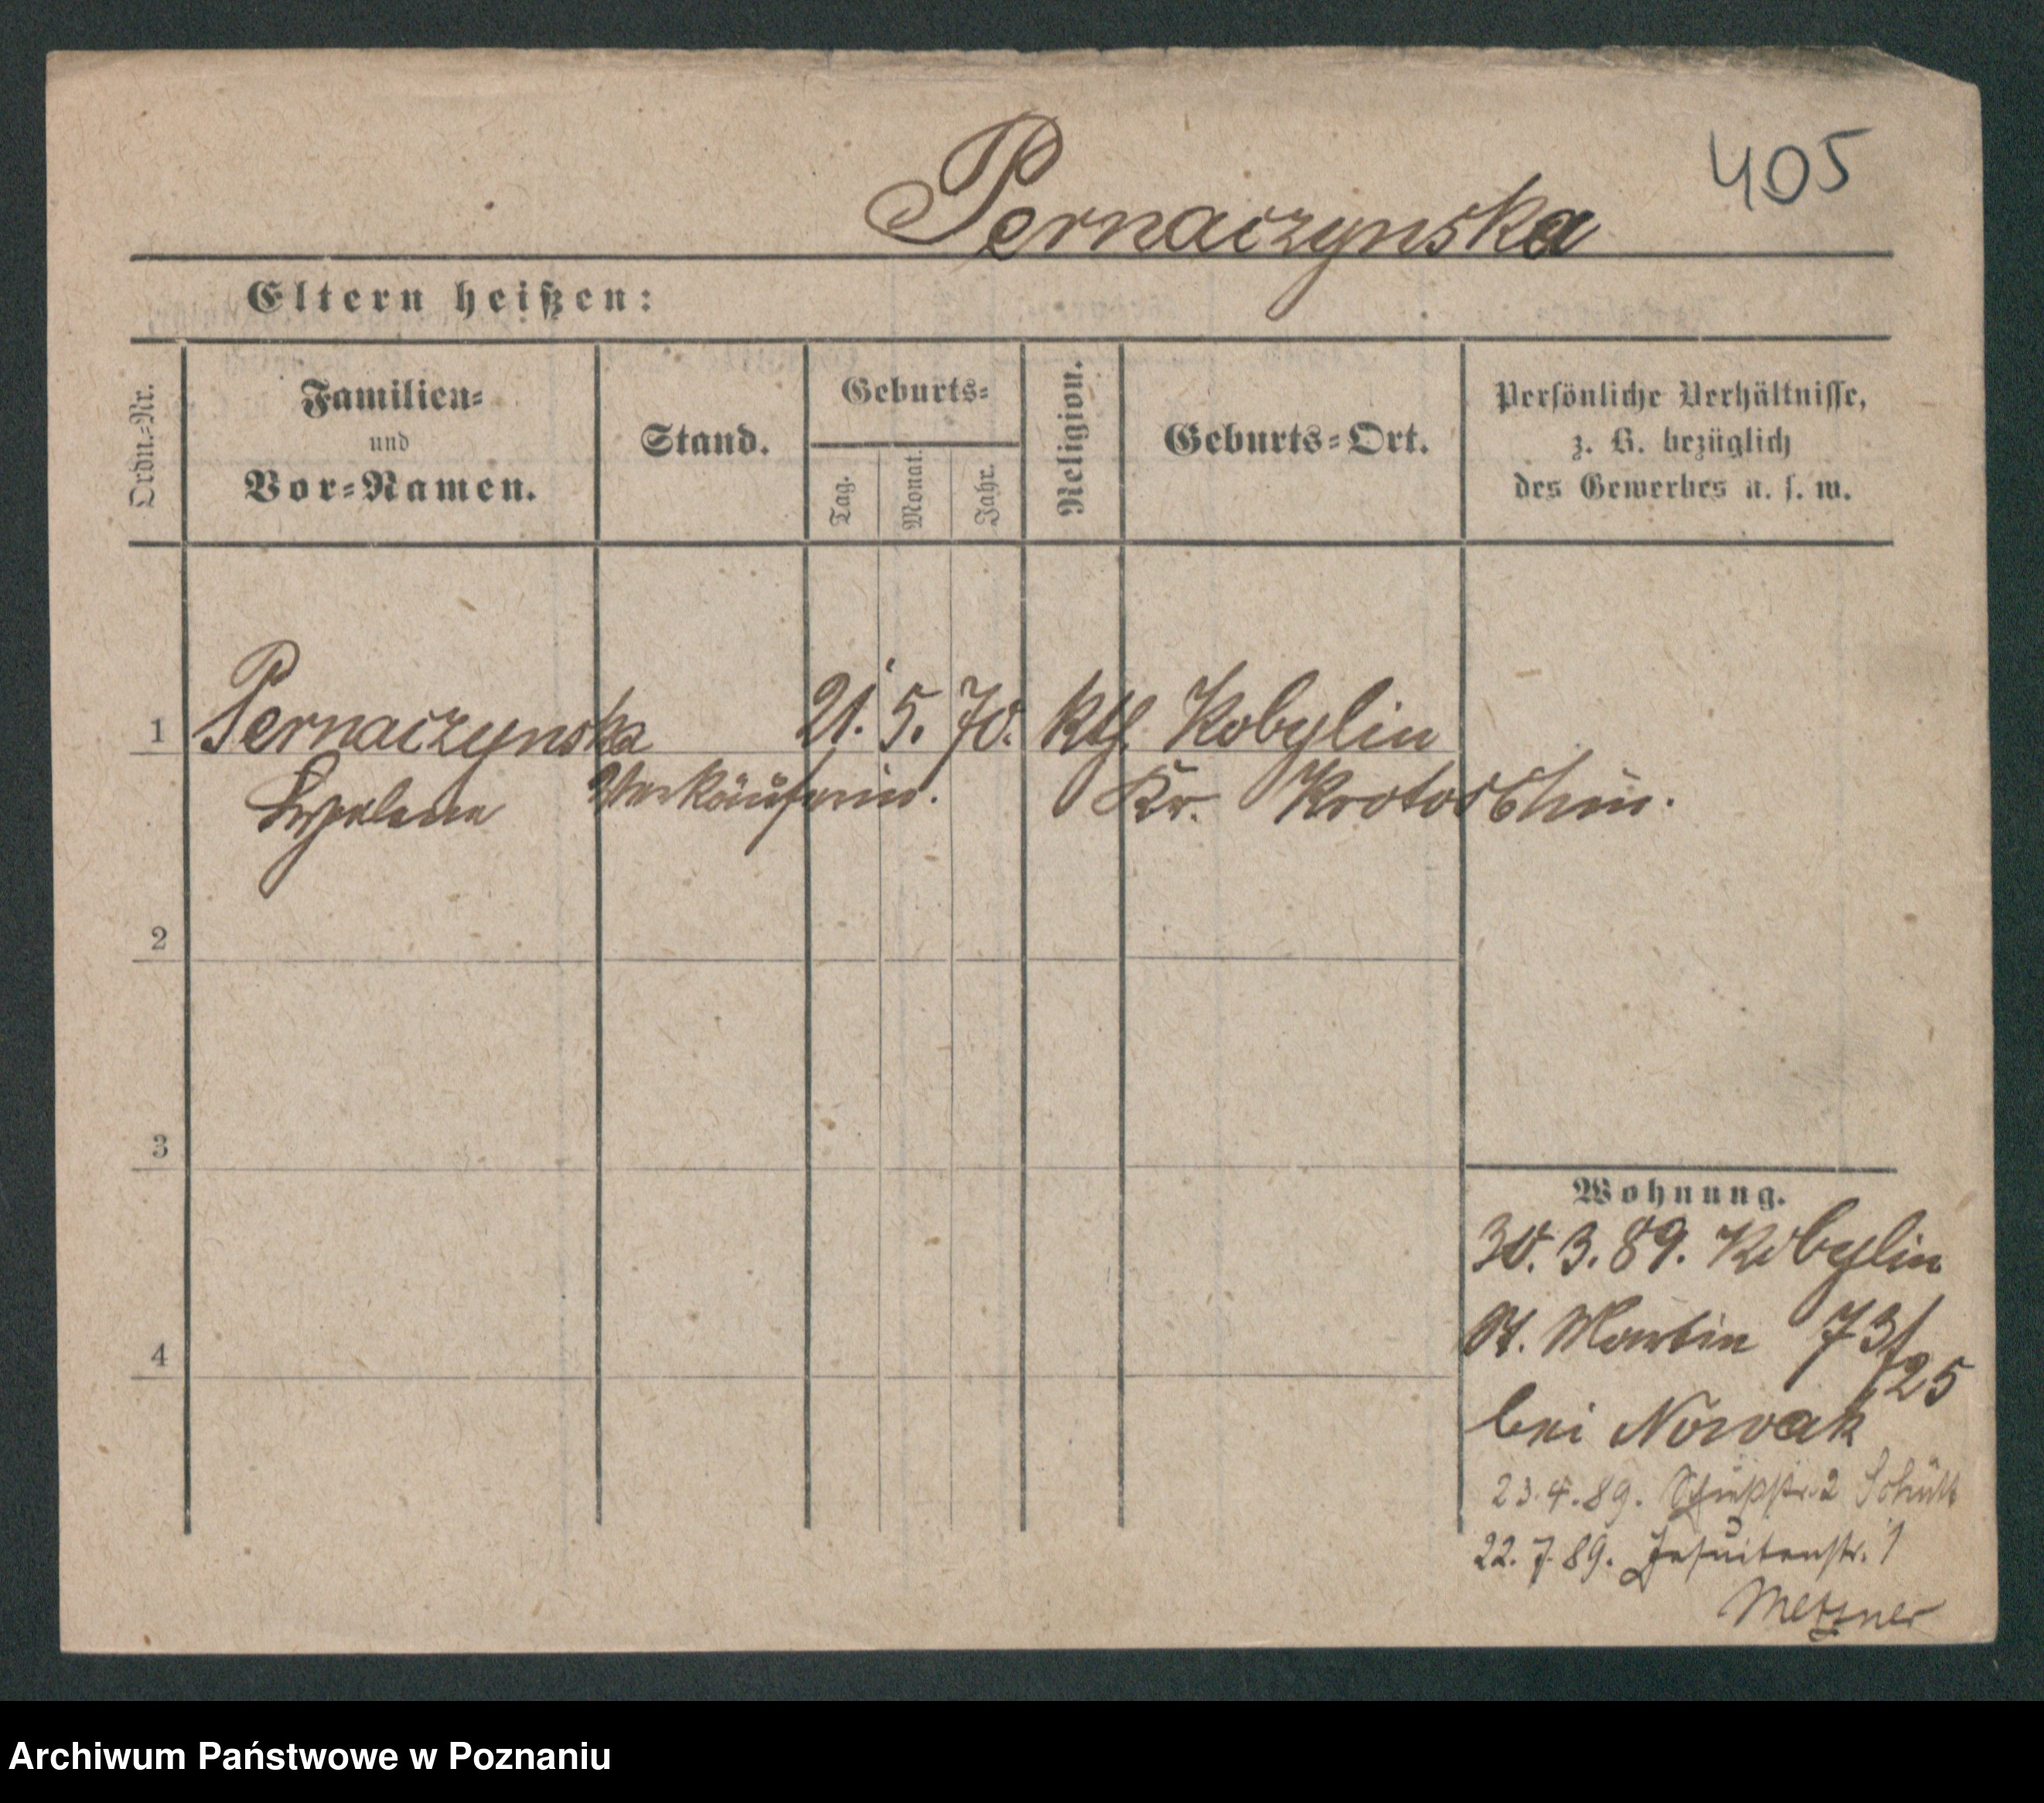 405
Pernaczynska
Eltern heißen:
Ordn.-Nr.
Familien-
und
Vor-Namen.
Stand.
Geburts-
Tag.
Monat.
Jahr.
Religion.
Geburts-Ort.
Persönliche Verhältnisse,
z. B. bezüglich
des Gewerbes u. s. w.
1 Pernaczynska 21. 5. 70. kth. Kobylin
Verkäuferin. Kr. Krotoschin.
2
3
4
Wohnung.
30. 3. 89. Kobylin
St. Martin 73/25
bei Nowak
23.4.89. Schießstr. 2
22.7.89. Jesuitenstr. 1
Metzner
Archiwum Państwowe w Poznaniu